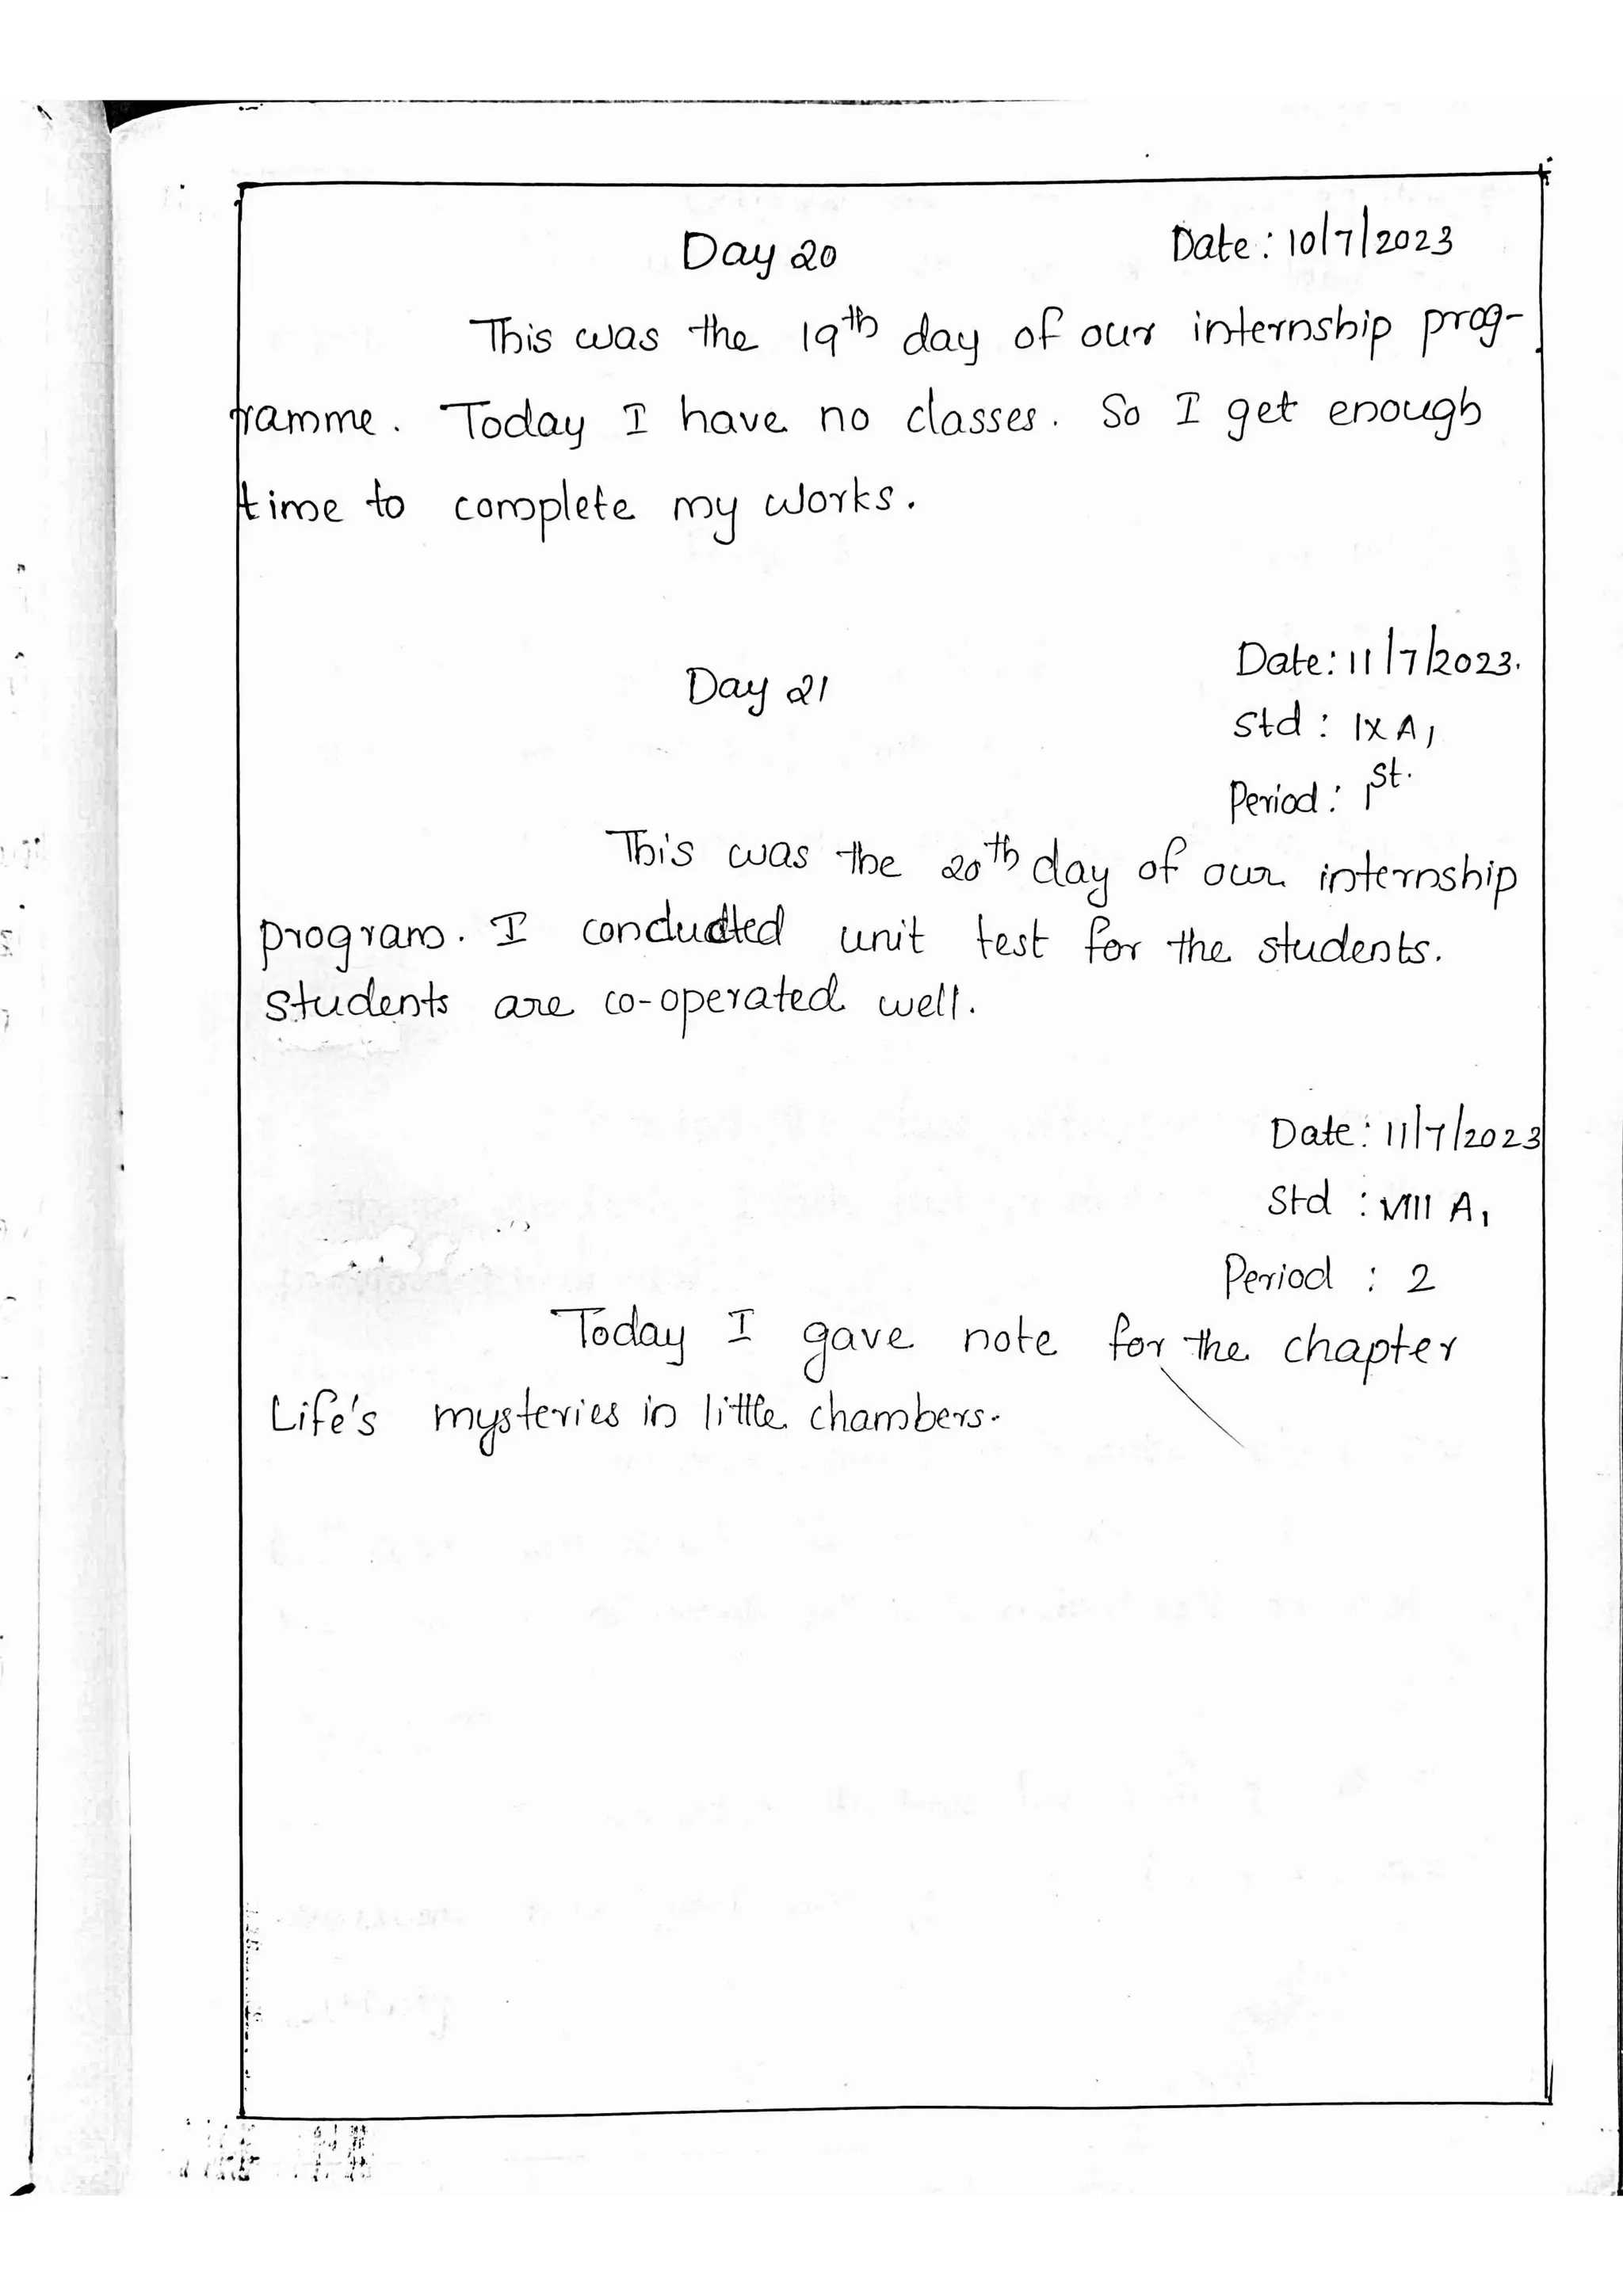 Day 20 Date : 10/7/2023
This was the 19th day of our internship prog-
ramme. Today I have no classes. So I get enough
time to complete my works.
Day 21 Date: 11/7/2023.
Std : IX A1
Period : 1st.
This was the 20th day of our internship
program. I conducted unit test for the students.
Students are co-operated well.
Date: 11/7/2023
Std : VIII A1
Period : 2
Today I gave note for the chapter
Life's mysteries in little chambers.